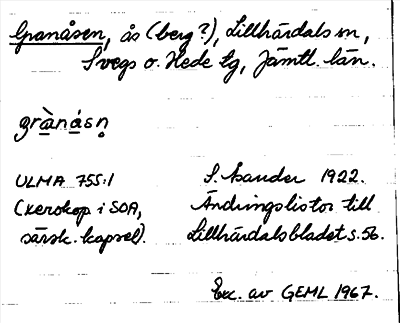 Granåsen, ås (berg?), Lillhärdals sn,
Svegs o. Hede tg, Jämtl. län.
grànásn̥
ULMA 755:1 S. Isander 1922.
(xerokop i SOA, Ändringslistor till
särsk. kapsel). Lillhärdalsbladet s. 56.
Exc. av GEML 1967.